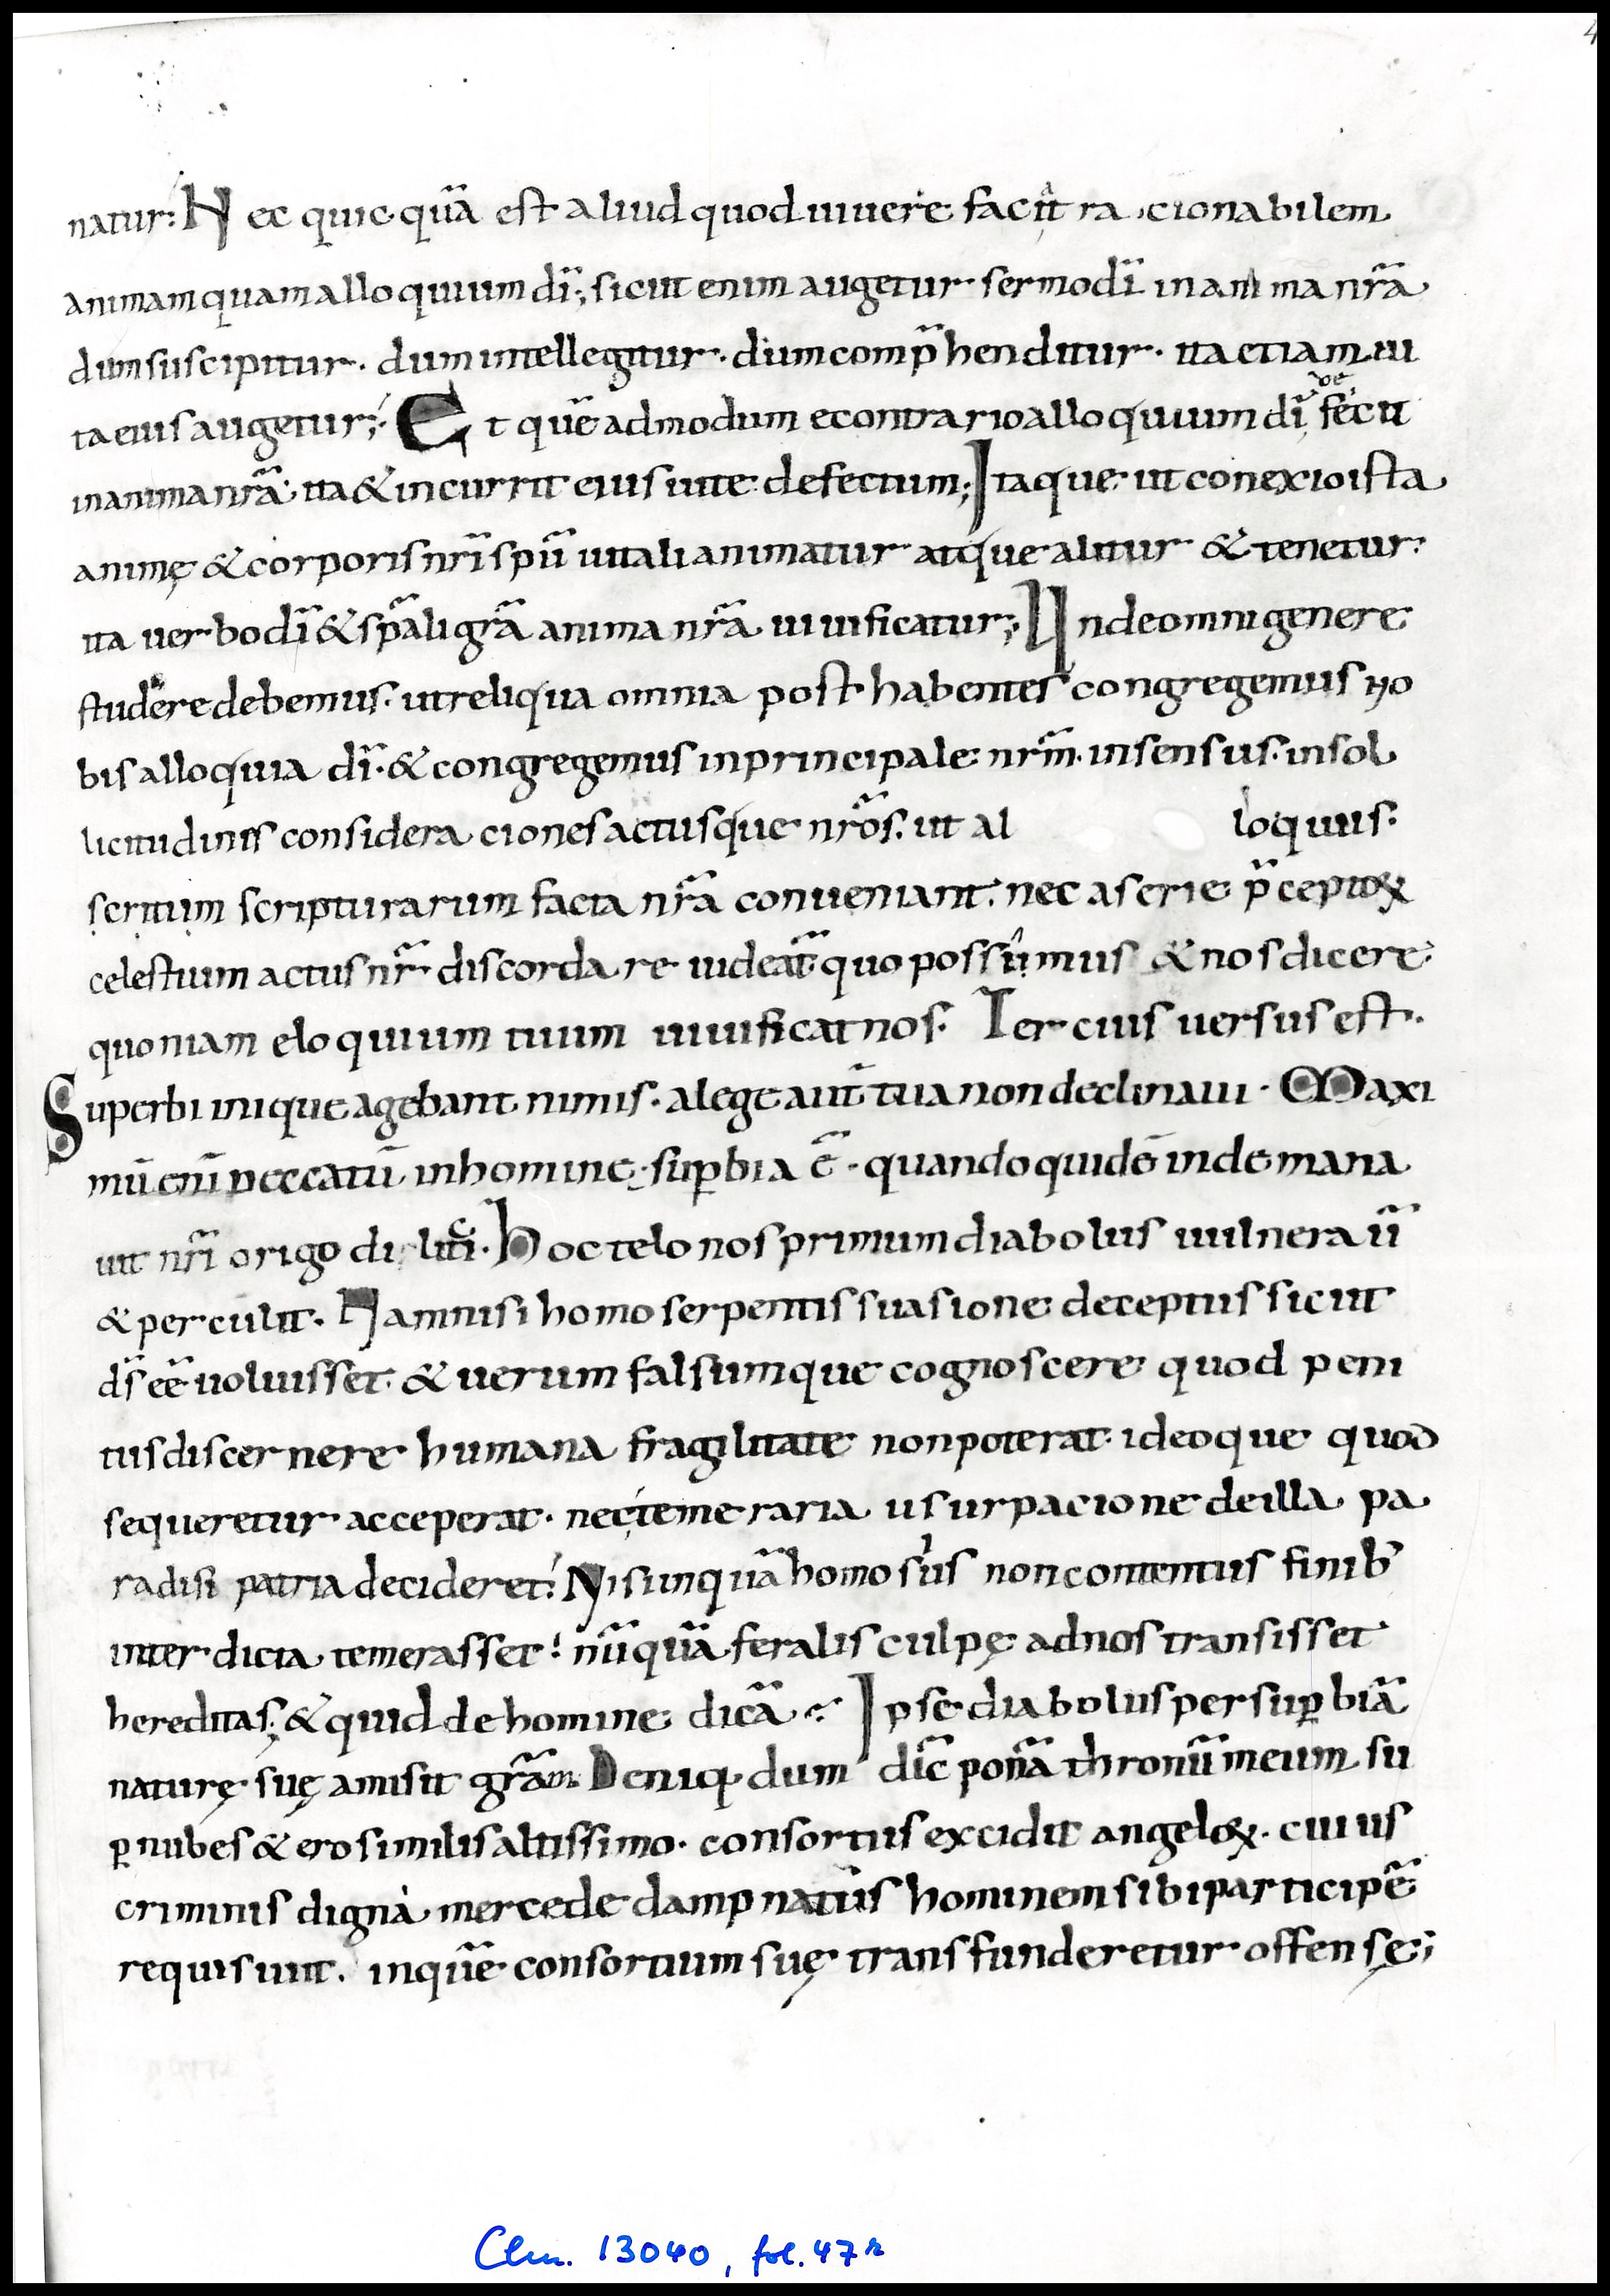 natur: Nec quicquā est aliud quod uiuere facit racionabilem
animam quam alloquium dī; sicut enim augetur sermo dī in anima nrā
dum suscipitur. dum intellegitur. dum comp̄henditur. ita etiam ui
ta eius augetur; Et quē admodum econtrario alloquium dī defecit
in anima nrā ita & incurrit eius uite defectum; Itaque ut conexio ista
animę & corporis nrī spū uitali animatur atque alitur & tenetur.
ita uerbo dī & sp̄ali grā anima nrā uiuificatur; Unde omni genere
studere debemus. ut reliqua omnia post habentes congregemus no
bis alloquia dī. & congregemus in principale nrm̄. in sensus. in sol
licitudinis consideraciones actusque nrōs. ut al loquiis
scritum scripturarum facta nrā conueniant. nec a serie p̄ceptoꝝ
celestium actus nr̄ discordare uideat̄ quo possimus & nos dicere.
quoniam eloquium tuum uiuificat nos. Tercius uersus est.
Superbi inique agebant nimis. a lege aut̄ tua non declinaui. Maxi
mū enī peccatū in homine suꝑbia ē. quandoquidē inde mana
uit nrī origo dilicti. Hoc telo nos primum diabolus uulnerauī
& perculit. Nam nisi homo serpentis suasione deceptus sicut
ds̄ eē uoluisset. & uerum falsumque cognoscere quod peni
tus discernere humana fragilitate non poterat. ideoque quod
sequeretur acceperat. nec temeraria usurpacione de illa pa
radisi patria decideret. Nisi unquā homo suis non contentus finib'
interdicta temerasset. nūquā feralis culpę ad nos transisset
hereditas. & quid de homine dicā. Ipse diabolus per suꝑbiā
naturę suę amisit grām. Deniq. dum dic̄ ponā thronū meum su
ꝑ nubes & ero similis altissimo. consortus excidit angeloꝝ. cuius
criminis digna mercede dampnatus hominem sibi participē
requisiuit. in quē consortium suę transfunderetur offensę;
Clm. 13040, fol. 47r